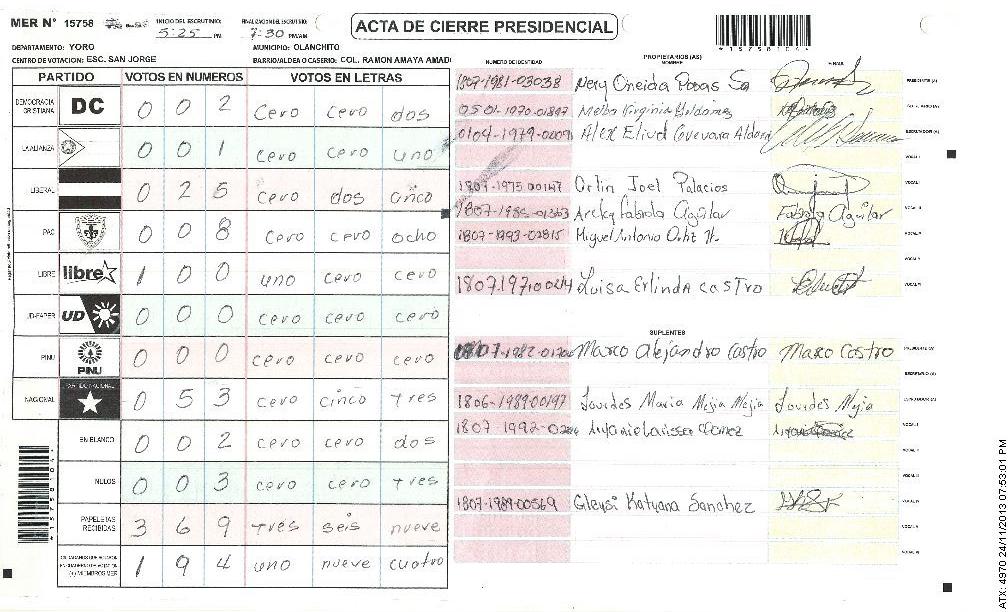 MER N° 15758
INICIO DEL ESCRUTINIO:
5:25 PM
FINALIZACION DEL ESCRUTINIO:
7:30 PM/AM
ACTA DE CIERRE PRESIDENCIAL
DEPARTAMENTO: YORO
MUNICIPIO: OLANCHITO
CENTRO DE VOTACION: ESC. SAN JORGE
BARRIO/ALDEA O CASERIO: COL. RAMON AMAYA AMADI
PARTIDO VOTOS EN NUMEROS VOTOS EN LETRAS
DEMOCRACIA CRISTIANA DC 0 0 2 cero cero dos
LA ALIANZA 0 0 1 cero cero uno
LIBERAL 0 2 5 cero dos cinco
PAC 0 0 8 cero cero ocho
LIBRE libre 1 0 0 uno cero cero
UD-FAPER UD 0 0 0 cero cero cero
PINU PINU 0 0 0 cero cero cero
NACIONAL PARTIDO NACIONAL 0 5 3 cero cinco tres
EN BLANCO 0 0 2 cero cero dos
NULOS 0 0 3 cero cero tres
PAPELETAS RECIBIDAS 3 6 9 tres seis nueve
1 9 4 uno nueve cuatro
PROPIETARIOS (AS)
NUMERO DE IDENTIDAD NOMBRE FIRMA
1807-1981-03038 Nery Oneida Posas Sa PRESIDENTE (A)
0501-1970-01897 Melba Virginia
0104-1979-0009 Alex Eliud Guevara Aldana ESCRUTADOR (A)
VOCAL I
1807-1975-00147 Orlin Joel Palacios VOCAL II
1807-1985-01363 Arcky Fabiola Aguilar Fabiola Aguilar VOCAL III
1807-1993-02815 Miguel Antonio Ortiz H. VOCAL IV
VOCAL V
1807.1971 00214 Luisa Erlinda Castro VOCAL VI
SUPLENTES
1807-1982-0170 Marco Alejandro Castro Marco Castro PRESIDENTE (A)
SECRETARIO (A)
1806-1989-00197 Lourdes Maria Mejia Mejia Lourdes Mejia ESCRUTADOR (A)
1807 1992-02 VOCAL I
VOCAL II
VOCAL III
1807-1989-00569 Gleysi Katyana Sanchez VOCAL IV
VOCAL V
VOCAL VI
ATX: 4970 24/11/2013 07:53:01 PM